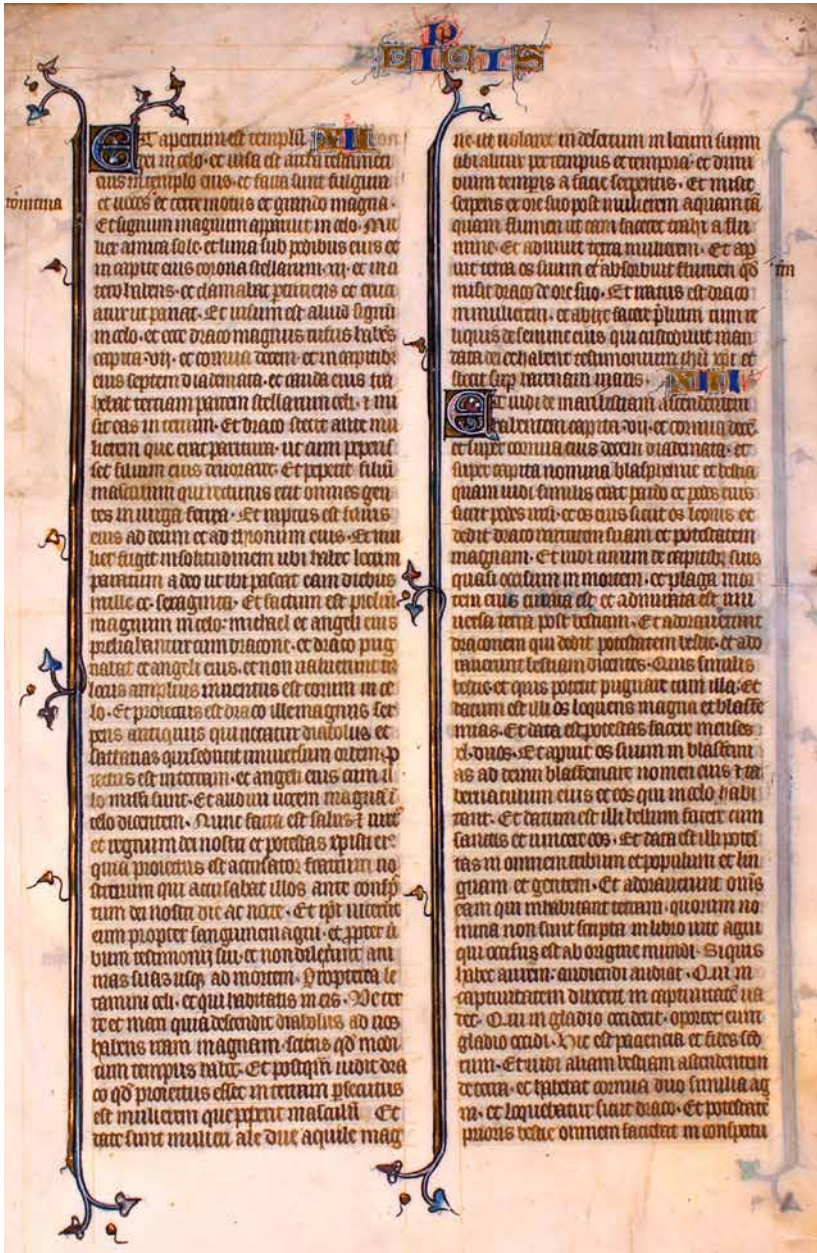 P
LICIS
Et apertum est templũ XII
dei in celo · et uisa est archa testamẽti
eius in templo eius · et facta sunt fulgura
tonitrua
et uoces et terre motus et grando magna ·
Et signum magnum apparuit in celo · Mu
lier amicta sole · et luna sub pedibus eius et
in capite eius corona stellarum · xij · et in u
tero habens · et clamabat parturiens et cruci
atur ut pariat · Et uisum est aliud signũ
in celo · et ecce draco magnus rufus habẽs
capita · vij · et cornua decem · et in capitibꝫ
eius septem diademata · et cauda eius tra
hebat tertiam partem stellarum celi · ⁊ mi
sit eas in terram · Et draco stetit ante mu
lierem que erat paritura · ut cum peperis
set filium eius deuoraret · Et peperit filiũ
masculum qui recturus erit omnes gen
tes in uirga ferrea · Et raptus est filius
eius ad deum et ad thronum eius · Et mu
lier fugit in solitudinem ubi habet locum
paratum a deo ut ibi pascat eam diebus
mille cc · sexaginta · Et factum est prelium
magnum in celo · michael et angeli eius
preliabantur cum dracone · et draco pug
nabat et angeli eius · et non ualuerunt nec
locus amplius inuentus est eorum in ce
lo · Et proiectus est draco ille magnus ser
pens antiquus qui uocatur diabolus et
sathanas qui seducit uniuersum orbem · ꝓ
iectus est in terram · et angeli eius cum il
lo missi sunt · Et audiui uocem magnã ĩ
celo dicentem · Nunc facta est salus ⁊ uirtꝰ
et regnum dei nostri et potestas xpisti eiꝰ
quia proiectus est accusator fratrum no
strorum qui accusabat illos ante conspec
tum dei nostri die ac nocte · Et ipi uicerũt
eum propter sanguinem agni · et ꝓpter ũ
bum testimonij sui · et non dilexerunt ani
mas suas usqꝫ ad mortem · Propterea le
tamini celi · et qui habitatis in eis · Ve ter
re et mari quia descendit diabolus ad uos
habens iram magnam · sciens qđ modi
cum tempus habet · Et postq̃m uidit dra
co qđ proiectus esset in terram ꝑsecutus
est mulierem que peperit masculũ Et
date sunt mulieri ale due aquile mag
ne ut uolaret in desertum in locum suum
ubi alitur per tempus et tempora · et dimi
dium temporis a facie serpentis · Et misit
serpens ex ore suo post mulierem aquam tã
quam flumen ut eam faceret trahi a flu
mine · Et adiuuit terra mulierem · Et ape
ruit terra os suum et absorbuit flumen qđ
misit draco de ore suo · Et iratus est draco
in mulierem · et abijt facere p̃lium cum re
liquis de semine eius qui custodiunt man
data dei et habent testimonium ihũ xpi et
stetit sup harenam maris · XIII
Et uidi de mari bestiam ascendentem
habentem capita · vij · et cornua decẽ ·
et super cornua eius decem diademata · et
super capita nomina blasphemie et bestia
quam uidi similis erat pardo et pedes eius
sicut pedes ursi · et os eius sicut os leonis et
dedit draco uirtutem suam et potestatem
magnam · Et uidi unum de capitibꝫ suis
quasi occisum in mortem · et plaga mor
tem eius curata est et admirata est uni
uersa terra post bestiam · Et adorauerunt
draconem qui dedit potestatem bestie · et ado
rauerunt bestiam dicentes · Quis similis
bestie et quis poterit pugnare cum illa · Et
datum est illi os loquens magna et blasfe
mias · Et data est potestas facere menses
xl · duos · Et aperuit os suum in blasfemi
as ad deum blasfemare nomen eius ⁊ ta
bernaculum eius et eos qui in celo habi
tant · Et datum est illi bellum facere cum
sanctis et uincere eos · Et data est illi potes
tas in omnem tribum et populum et lin
guam et gentem · Et adorauerunt om̃s
eam qui inhabitant terram · quorum no
mina non sunt scripta in libro uite agni
qui occisus est ab origine mundi · Siquis
habet aurem · audiendi audiat · Qui in
captiuitatem duxerit in captiuitatẽ ua
det · Qui in gladio occiderit · oportet eum
gladio occidi · Hic est paciencia et fides sco
rum · Et uidi aliam bestiam ascendentem
de terra · et habebat cornua duo similia ag
ni · et loquebatur sicut draco · Et potestatẽ
prioris bestie omnem faciebat in conspectu